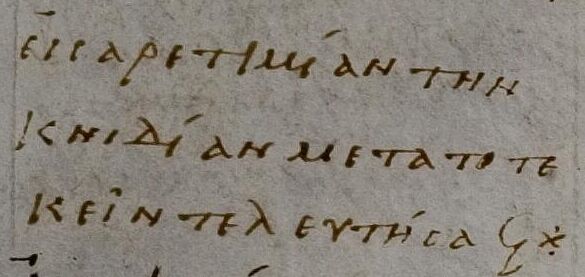 εἰς ἀρετιμίαν την
κνιδίαν μετα το τε
κεῖν τελευτήσας